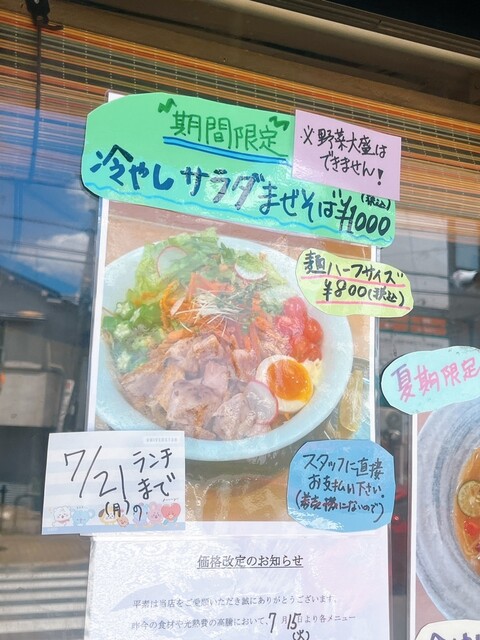 期間限定
冷やしサラダまぜそば ¥1000
(税込)
※野菜大盛は
できません!
麺ハーフサイズ
¥800(税込)
夏期限定
7/21
(月)の
ランチ
まで
スタッフに直接
お支払い下さい
(券売機にないので)
価格改定のお知らせ
平素は当店をご愛顧いただき誠にありがとうございます。
昨今の食材や光熱費の高騰において、7月15日より各メニュー
(火)